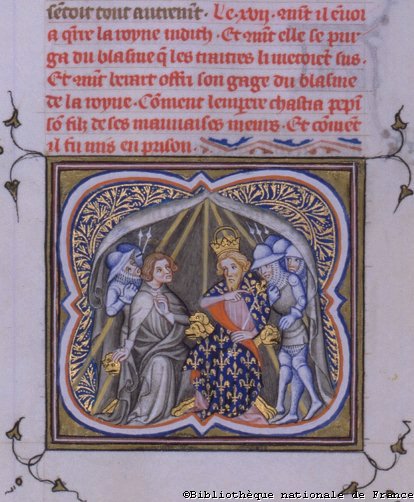 sẽcoit tout autremẽt. Le xvij. mñt il ẽuoi
a q̃rre la royne iudith. Et mñt elle se pur
ga du blasme q̃ les traitres li metoiẽt sus.
Et mñt berart offri son gage du blasme
de la royne. Cõment lempere chastia pepĩ
sõ filz de ses mauuaises meurs. Et cõmẽt
il fu mis en prison.
©Bibliothèque nationale de France